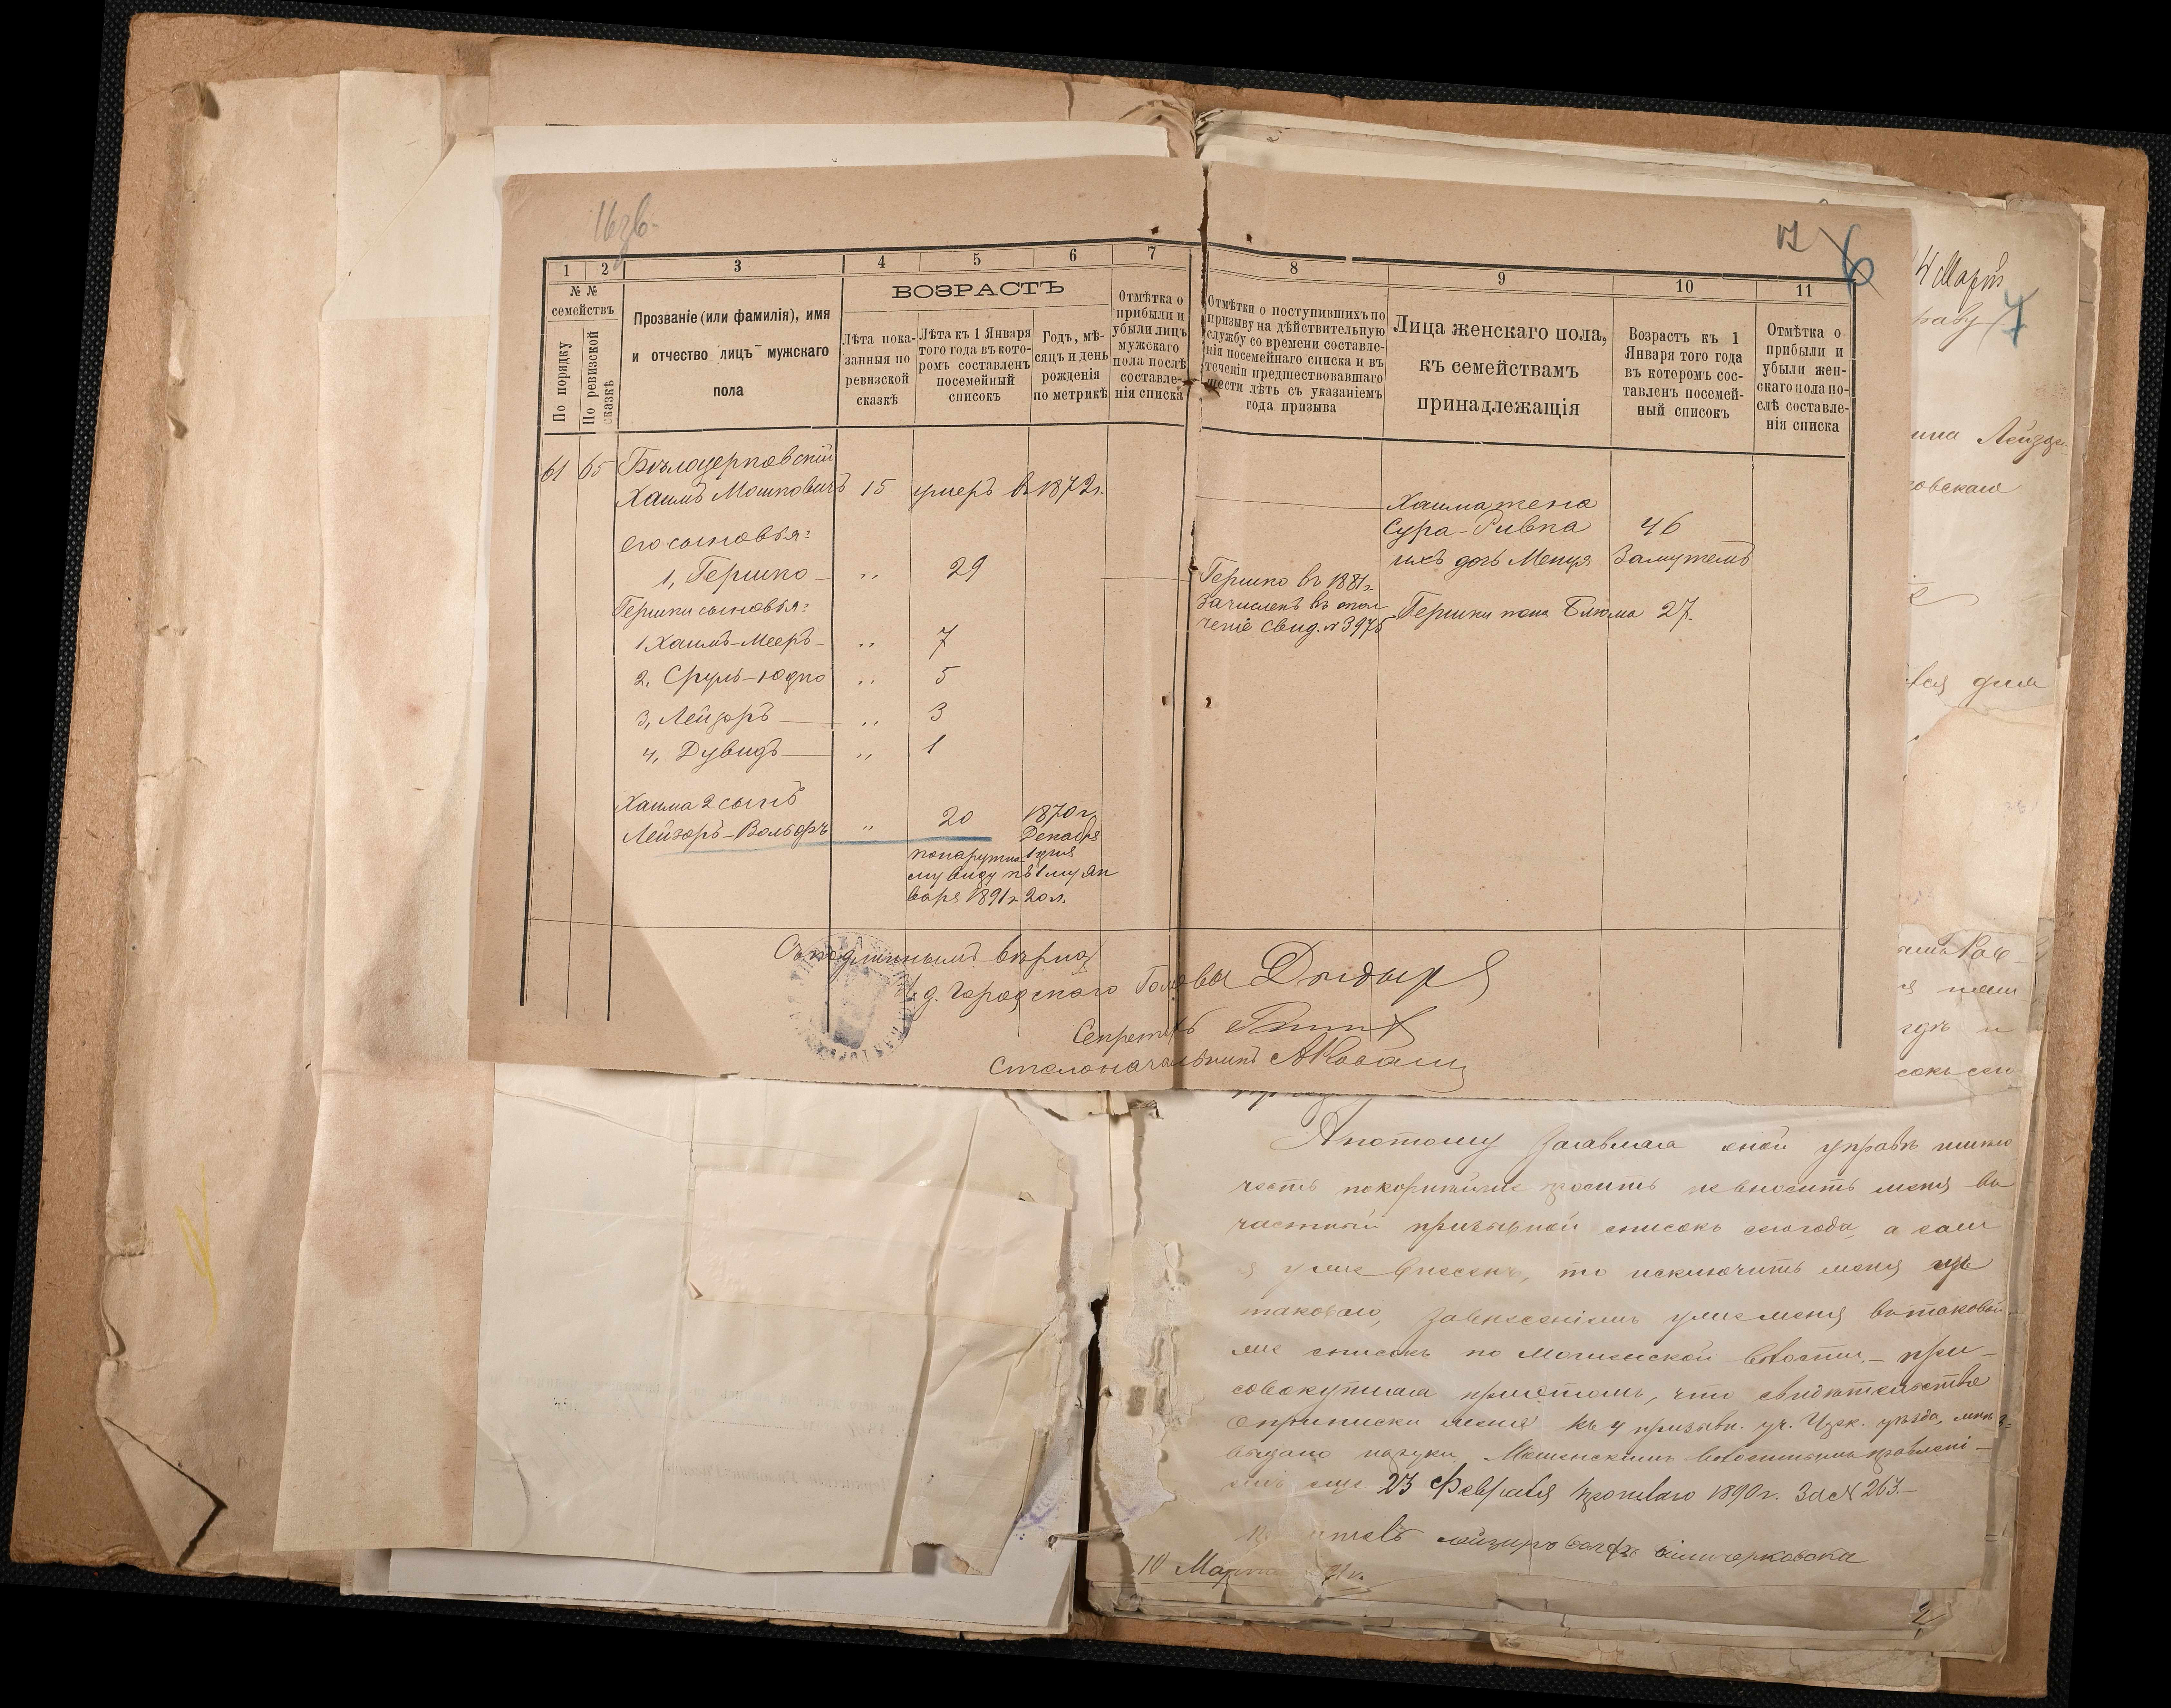 16 зв.
6
1
2
3
4
5
6
7
8
9
10
11
№ №
семействъ
По порядку
По ревизской
сказкѣ
Прозваніе (или фамилія), имя
и отчество лицъ мужскаго
пола
ВОЗРАСТЪ
Лѣта пока-
занныя по
ревизской
сказкѣ
Лѣта къ 1 Января
того года въ кото-
ромъ составленъ
посемейный
списокъ
Годъ, мѣ-
сяцъ и день
рожденія
по метрикѣ
Отмѣтка о
прибыли и
убыли лицъ
мужскаго
пола послѣ
составле-
нія списка
Отмѣтки о поступившихъ по
призыву на дѣйствительную
службу со времени составле-
нія посемейнаго списка и въ
теченіи предшествовавшаго
шести лѣтъ съ указаніемъ
года призыва
Лица женскаго пола,
къ семействамъ
принадлежащія
Возрастъ къ 1
Января того года
въ которомъ сос-
тавленъ посемей-
ный списокъ
Отмѣтка о
прибыли и
убыли жен-
скаго пола по-
слѣ составле-
нія списка
61 65 Бѣлоцерковскій
Хаимъ Мошковичъ 15 умеръ в 1872 г.
Хаима жена
Сура-Ривка 46
ихъ дочь Менуя Замужемъ
его сыновья:
1, Гершко „ 29
Гершко въ 1881 г.
зачисленъ въ опол
ченіе свид. № 3975
Гершки жена Блюма 27.
Гершки сыновья:
1 Хаимъ-Мееръ „ 7
2, Сруль-Юдко „ 5
3, Лейзоръ „ 3
4, Дувидъ „ 1
Хаима 2 сынъ
Лейзоръ-Вольфъ „ 20 1870 г.
Декабря
1 дня
по наружно
му виду къ 1 му Ян
варя 1891 г. 20 л.
Съ подлиннымъ вѣрно
И. д. Городскаго Головы
Секретарь
Столоначальникъ
4 Марта
7
раву
ина Лейзор
овскаго
А потому заявляя оной управѣ имѣю
честь покорнѣйше просить не вносить меня въ
частный призывной списокъ сего года, а если
я уже внесенъ, то исключить меня изъ
таковаго, за внесеніемъ уже меня въ таковой
же списокъ по Мошенской волости, – при-
совокупляя при этомъ, что свидѣтельство
о припискѣ меня къ 4 призывн. уч. Черк. уѣзда, мнѣ
выдано на руки Мошенскимъ волостнымъ правлені-
емъ еще 23 Февраля прошлаго 1890 г. за № 263.–
10 Марта